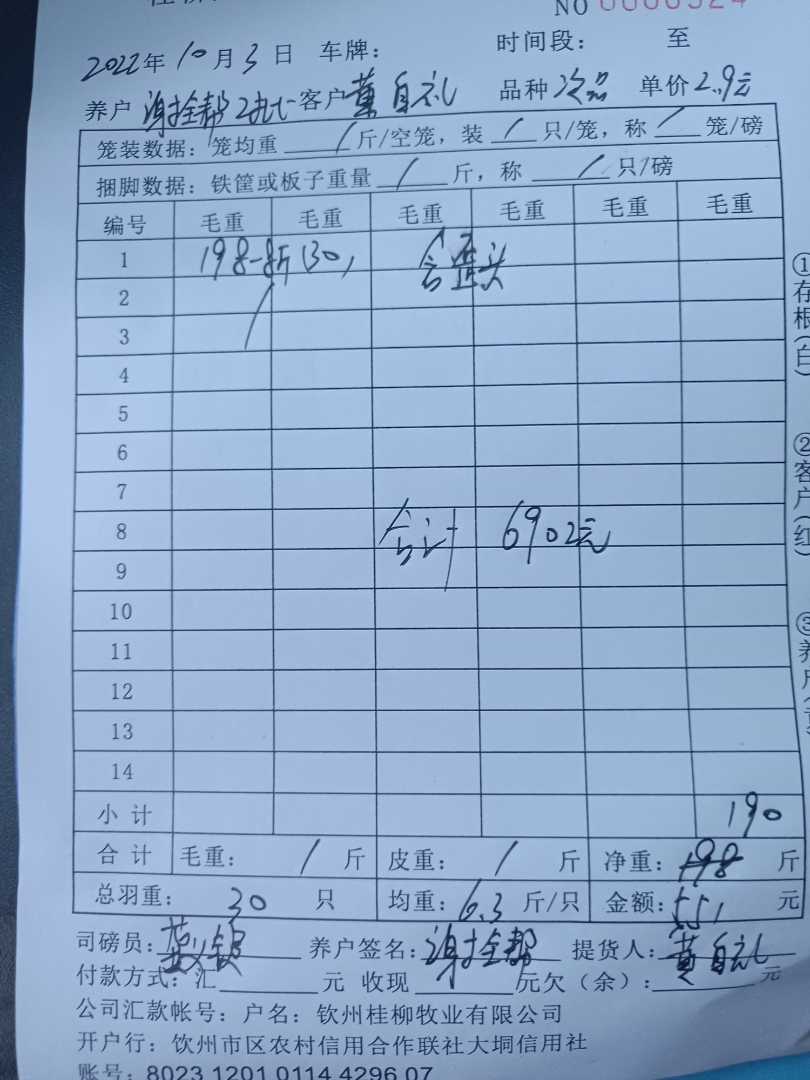 NO 0000524
2022年10月3日 车牌: 时间段: 至
养户 谢拴帮 客户 黄自礼 品种 次品 单价 2.9元
笼装数据: 笼均重 / 斤/空笼, 装 / 只/笼, 称 / 笼/磅
捆脚数据: 铁筐或板子重量 / 斤, 称 / 只/磅
编号 毛重 毛重 毛重 毛重 毛重 毛重
1 198-8斤(30, 含歪头
2 /
3
4
5
6
7
8 合计 6902元
9
10
11
12
13
14
小计 190
合计 毛重: / 斤 皮重: / 斤 净重: 198 斤
总羽重: 30 只 均重: 6.3 斤/只 金额: 551 元
司磅员: 养户签名: 谢拴帮 提货人: 黄自礼
付款方式: 汇 元 收现 元欠(余): 元
公司汇款帐号: 户名: 钦州桂柳牧业有限公司
开户行: 钦州市区农村信用合作联社大垌信用社
账号: 8023 1201 0114 4296 07
①存根(白)
②客户(红)
③养户